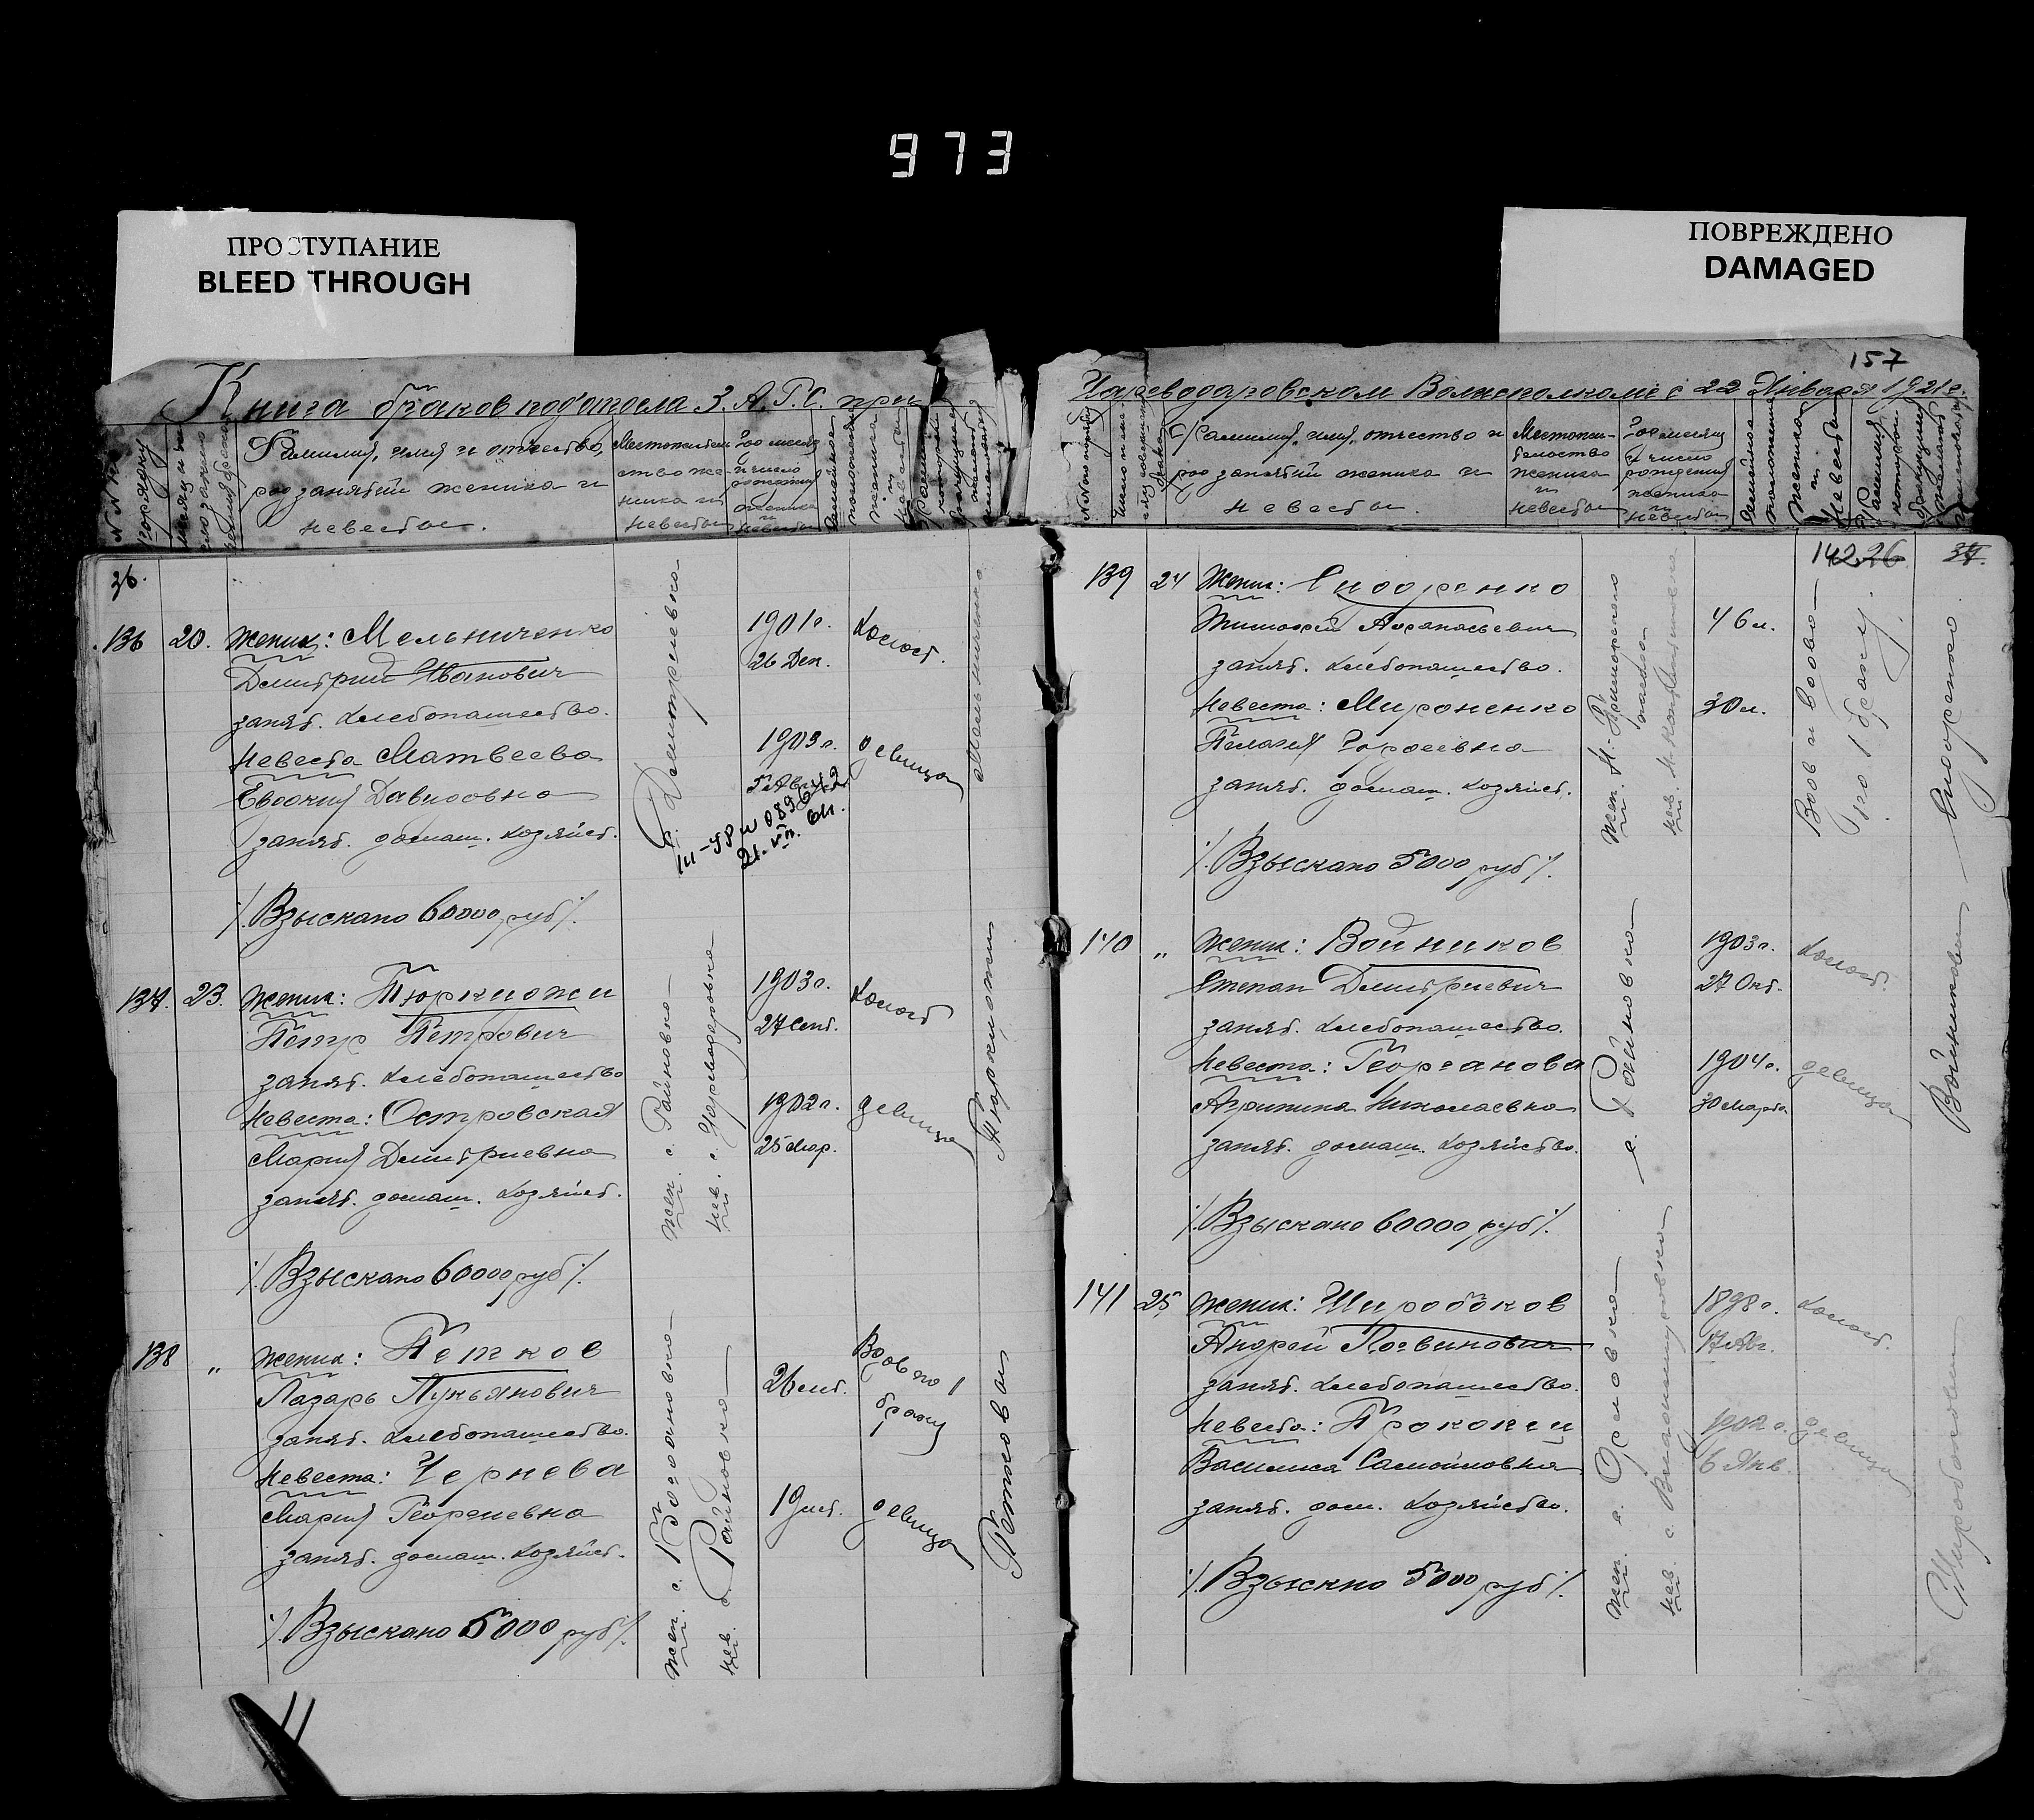 973
ПРОСТУПАНИЕ
BLEED THROUGH
ПОВРЕЖДЕНО
DAMAGED
157
Книга браков подотдела З.А.Г.С. при
Цареводаровском Волисполкоме с 22 Января 1921 г.
Фамилия, имя и отчество,
род занятий жениха и
невесты.
Местожитель
ство же-
ниха и
невесты
Год месяц
и число
рождения
жениха
и
невесты
Фамилия, имя, отчество и
род занятий жениха и
невесты.
Местожи-
тельство
жениха
и
невесты
Год месяц
и число
рождения
жениха
и
невесты
Семейное
положение
жениха
и
невесты
36.
136 20. Жених: Мельниченко
Дмитрий Иванович
занят. хлебопашество.
Невеста Матвеева
Евдокия Давидовна
занят. домаш. хозяйст.
/. Взыскано 60000 руб /.
с. Дмитревка
1901 г.
26 Дек.
холост.
1903 г.
девица
21. VII. 61 г.
Мельниченко
137. 23. Жених: Тюркиожи
Пётр Петрович
занят. хлебопашество
Невеста: Островская
Мария Дмитриевна
занят. домаш. хозяйст.
/. Взыскано 60000 руб /.
жен. с. Райновка
нев. с. Цареводаровка
1903 г.
27 Сент.
холост
1902 г.
25 Мар.
девица
Тюркиожи
138 „ Жених: Петков
Лазарь Лукьянович
занят. хлебопашество.
Невеста: Чернева
Мария Георгиевна
занят. домаш. хозяйст.
/. Взыскано 5000 руб /.
жен. с. Богдановка
нев. с. Райновка
26 лет.
Вдов по 1
браку
19 лет.
девица
Петков
142.26
139 24 Жених: Сидоренко
Тимофей Афанасьевич
занят. хлебопашество.
Невеста: Мироненко
Пелагея Гордеевна
занят. домаш. хозяйст.
/. Взыскано 5000 руб /.
46 л.
30 л.
Вдов и вдова
по 1 браку.
Сидоренко
140 „ Жених: Войников
Степан Дмитриевич
занят. хлебопашество.
Невеста: Георганова
Агрипина Николаевна
занят. домаш. хозяйство.
/. Взыскано 60000 руб /.
с. Райновка
1903 г.
27 Окт.
холост.
1904 г.
30 Марта
девица
Войникова
141 25 Жених: Широбоков
Андрей Логвинович
занят. хлебопашество.
Невеста: Прокопец
Василиса Самойловна
занят. дом. хозяйство.
/. Взыскно 5000 руб /.
жен. с. Орловка
нев. с.
1898 г.
17 Авг.
холост.
1902 г.
6 Янв.
девица
Широбокова